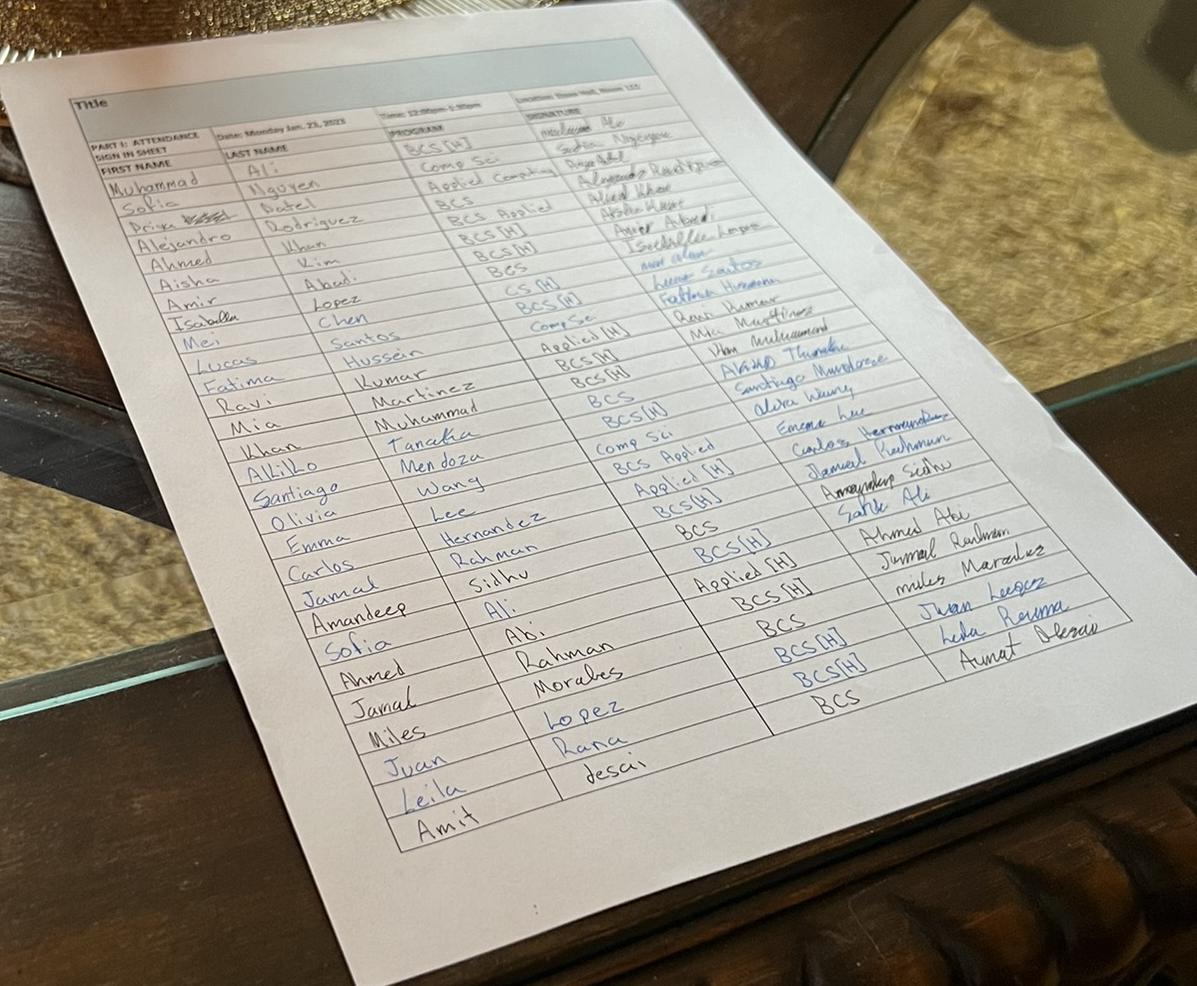 Title
PART I: ATTENDANCE SIGN IN SHEET Date: Monday Jan. 23, 2023 Time: 12:00pm-1:30pm Location:
FIRST NAME LAST NAME PROGRAM SIGNATURE
Muhammad Ali BCS[H] Ali
Sofia Nguyen Comp Sci Sofia Nguyen
Priya Patel Applied Computing
Alejandro Rodriguez BCS Alejandro Rodriguez
Ahmed Khan BCS Applied Ahmed Khan
Aisha Kim BCS[H]
Amir Abadi BCS[H] Amir Abadi
Isabella Lopez BCS Isabella Lopez
Mei Chen CS[H] mei chen
Lucas Santos BCS[H] Lucas Santos
Fatima Hussein CompSci Fatima Hussein
Ravi Kumar Applied[H] Ravi Kumar
Mia Martinez BCS[H] Mia Martinez
Khan Muhammad BCS[H] Khan Muhammad
AKiKo Tanaka BCS Akiko Tanaka
Santiago Mendoza BCS[H] Santiago Mendoza
Olivia Wang Comp Sci olivia Wang
Emma Lee BCS Applied Emma Lee
Carlos Hernandez Applied[H] Carlos Hernandez
Jamal Rahman BCS[H] Jamal Rahman
Amandeep Sidhu BCS Amandeep Sidhu
Sofia Ali BCS[H] Sofia Ali
Ahmed Abi Applied[H] Ahmed Abi
Jamal Rahman BCS[H] Jamal Rahman
Miles Morales BCS miles Morales
Juan Lopez BCS[H] Juan Lopez
Leila Rana BCS[H] Leila
Amit desai BCS Amit